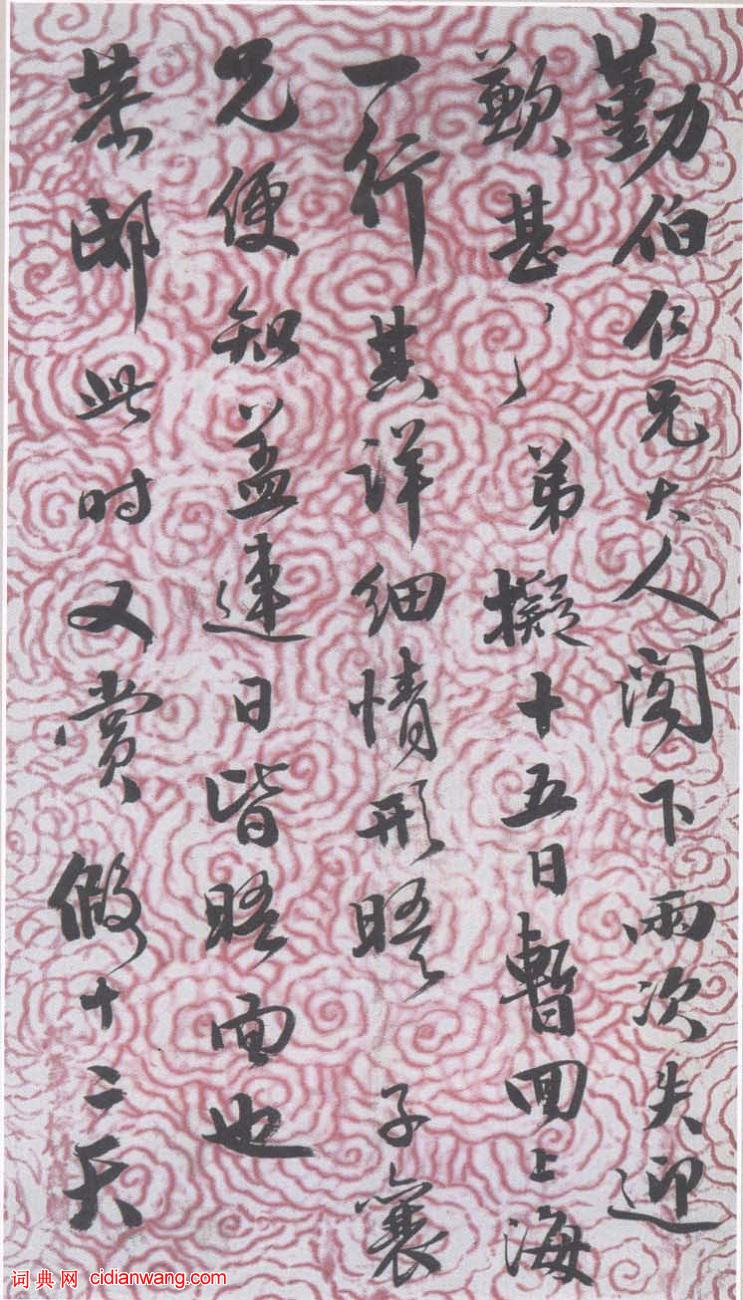 勤伯仁兄大人阁下两次失迎
歉甚〻弟擬十五日暫回上海
一行其详细情形晤子襄
兄便知盖連日皆晤面也
荣邸此时又赏假十二天
词典网 cidianwang.com